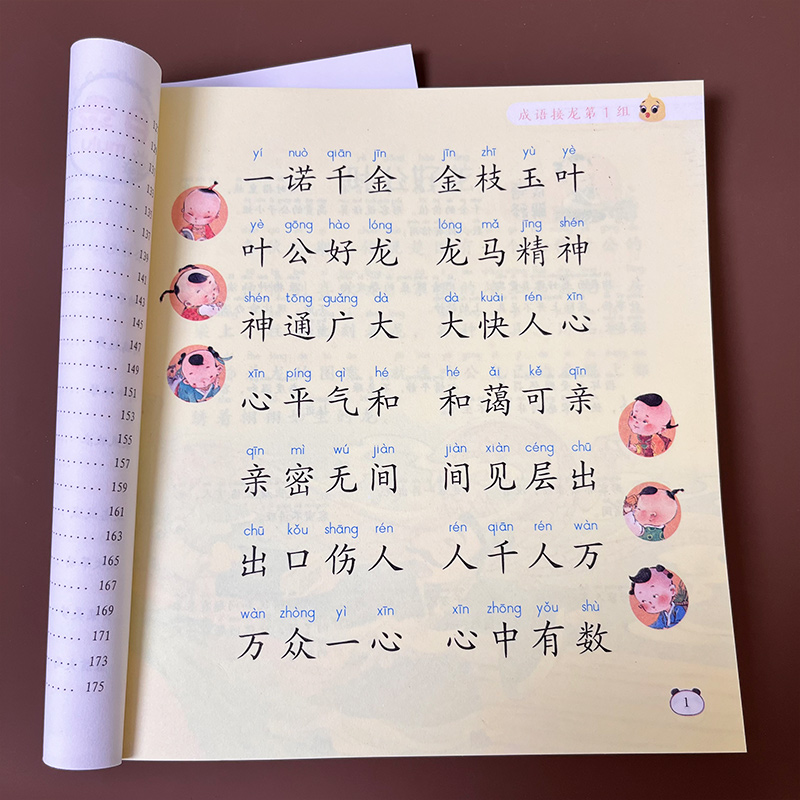 成语接龙第1组
yí nuò qiān jīn jīn zhī yù yè
一诺千金 金枝玉叶
yè gōng hào lóng lóng mǎ jīng shén
叶公好龙 龙马精神
shén tōng guǎng dà dà kuài rén xīn
神通广大 大快人心
xīn píng qì hé hé ǎi kě qīn
心平气和 和蔼可亲
qīn mì wú jiàn jiàn xiàn céng chū
亲密无间 间见层出
chū kǒu shāng rén rén qiān rén wàn
出口伤人 人千人万
wàn zhòng yì xīn xīn zhōng yǒu shù
万众一心 心中有数
1
135
137
139
141
143
145
147
149
151
153
155
157
159
161
163
165
167
169
171
173
175